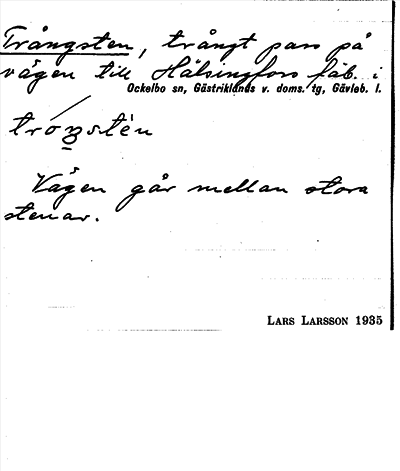 Trångsten, trångt pass på
vägen till Hälsingfors fäb. i
Ockelbo sn, Gästriklands v. doms. tg, Gävleb. l.
Vägen går mellan stora
stenar.
LARS LARSSON 1935